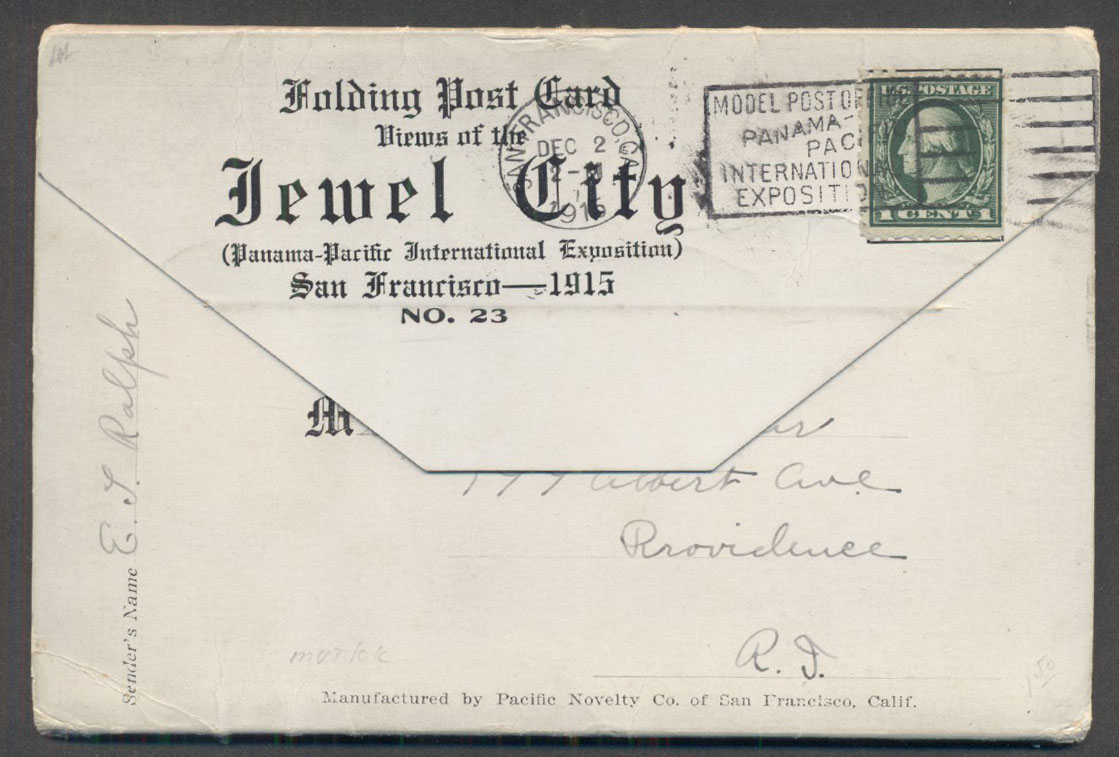 Folding Post Card
Views of the
Jewel City
(Panama-Pacific International Exposition)
San Francisco—1915
NO. 23
SAN FRANCISCO, CA
DEC 2
MODEL POST OFFICE
PANAMA-
PAC
INTERNATIONA
EXPOSITI
U.S. POSTAGE
1 CENT 1
M
Albert Ave
Providence
R. I.
Sender's Name E. J. Ralph
150
Manufactured by Pacific Novelty Co. of San Francisco, Calif.